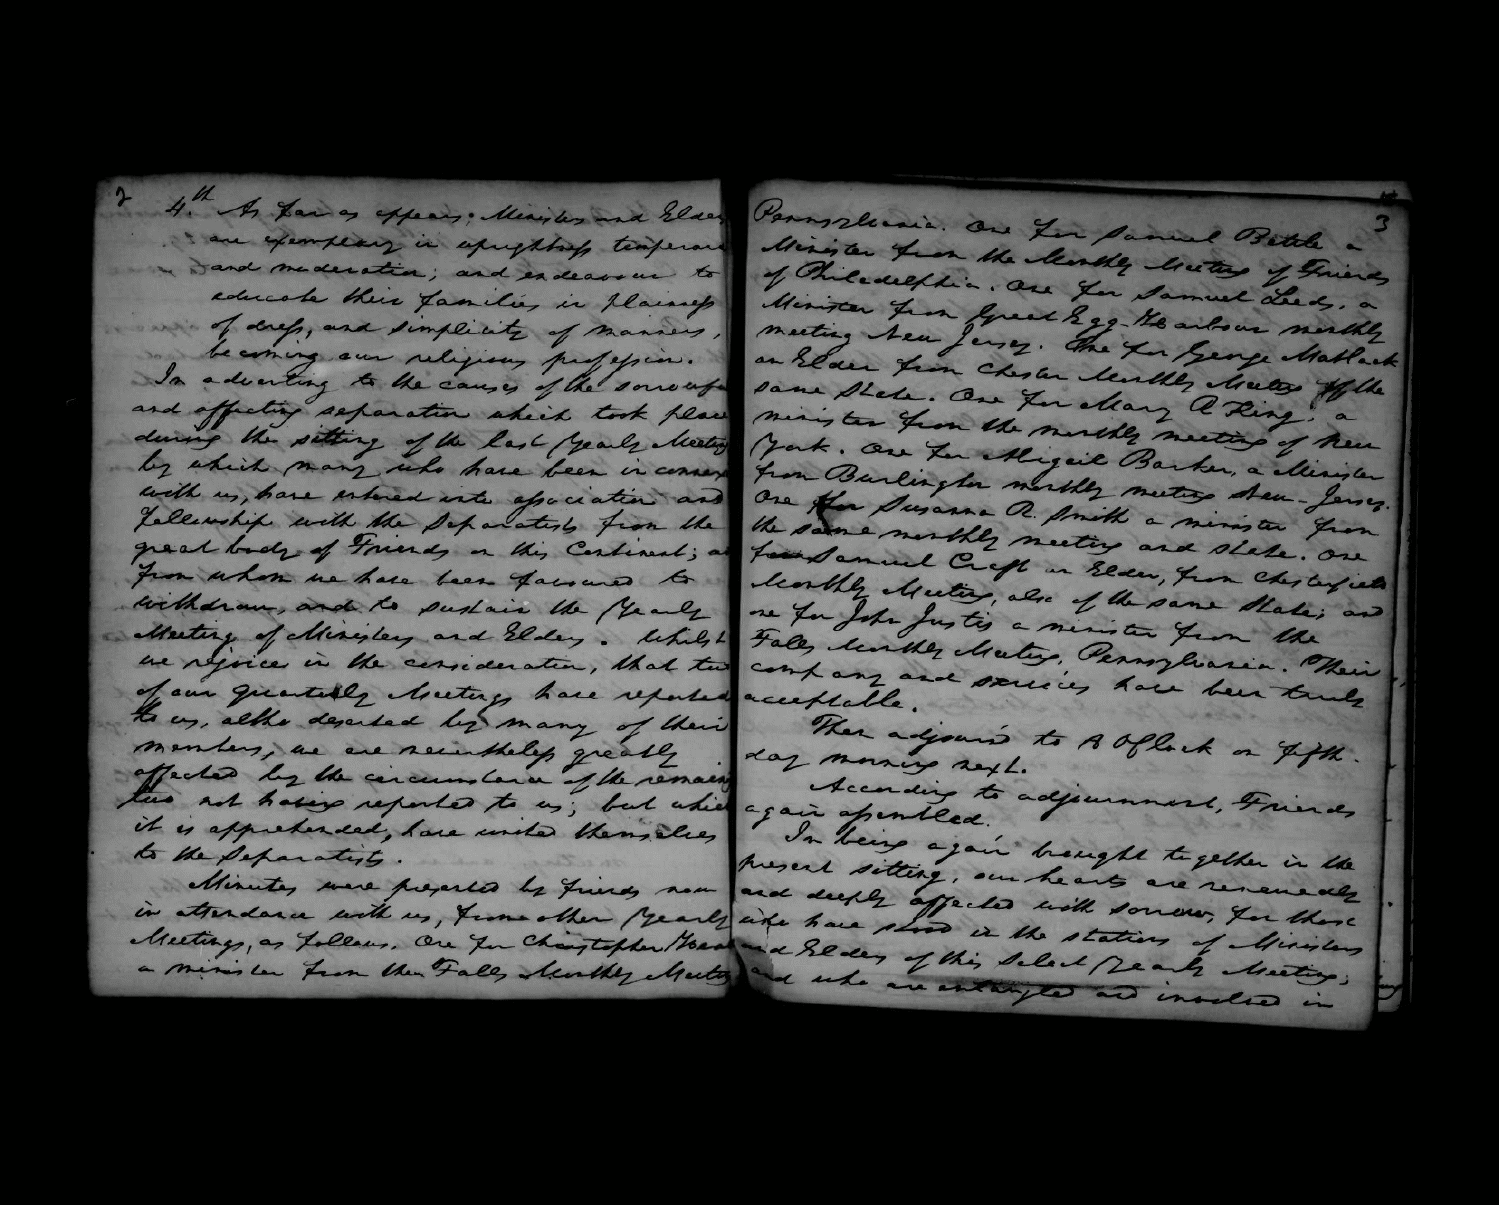 2
4.th As far as appears; Ministers and Elders
are exemplary in uprightness temperance
and moderation; and endeavour to
educate their families in plainness
of dress, and simplicity of manners,
becoming our religious profession.
In adverting to the causes of the sorrowful
and affecting separation which took place
during the sitting of the last Yearly Meeting
by which many who have been in connex
with us, have entered into association and
fellowship with the Separatists from the
great body of Friends on this Continent; and
from whom we have been favoured to
withdraw, and to sustain the Yearly
Meeting of Ministers and Elders. Whilst
we rejoice in the consideration, that two
of our Quarterly Meetings have reported
to us, altho deserted by many of their
members; we are nevertheless greatly
affected by the circumstance of the remaining
two not having reported to us; but which
it is apprehended, have united themselves
to the Separatists.
Minutes were presented by friends now
in attendance with us, from other Yearly
Meetings, as follows. One for Christopher
a minister from the Falls Monthly Meeting
3
Pennsylvania. One for Samuel Bettle a
Minister from the Monthly Meeting of Friends
of Philadelphia. One for Samuel Leeds, a
Minister from Great Egg-Harbour monthly
meeting New Jersey. One for George Matlack
an Elder from Chester Monthly Meeting of the
same State. One for Mary R King, a
minister from the monthly meeting of New
York. One for Abigail Barker, a Minister
from Burlington monthly meeting New-Jersey.
One for Susanna R. Smith a minister from
the same monthly meeting and state. One
for Samuel Craft an Elder, from Chesterfield
Monthly Meeting, also of the same State; and
one for John Justis a minister from the
Falls Monthly Meeting, Pennsylvania. Their
company and services have been truly
acceptable.
Then adjourn'd to 8 OClock on fifth-
day morning next.
According to adjournment, Friends
again assembled.
In being again brought together in the
present sitting, our hearts are renewedly
and deeply affected with sorrow, for those
who have stood in the stations of Ministers
and Elders of this Select Yearly Meeting;
and who are entangled and involved in